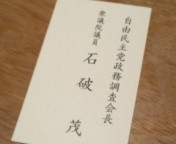 自由民主党政務調査会長
衆議院議員
石破茂